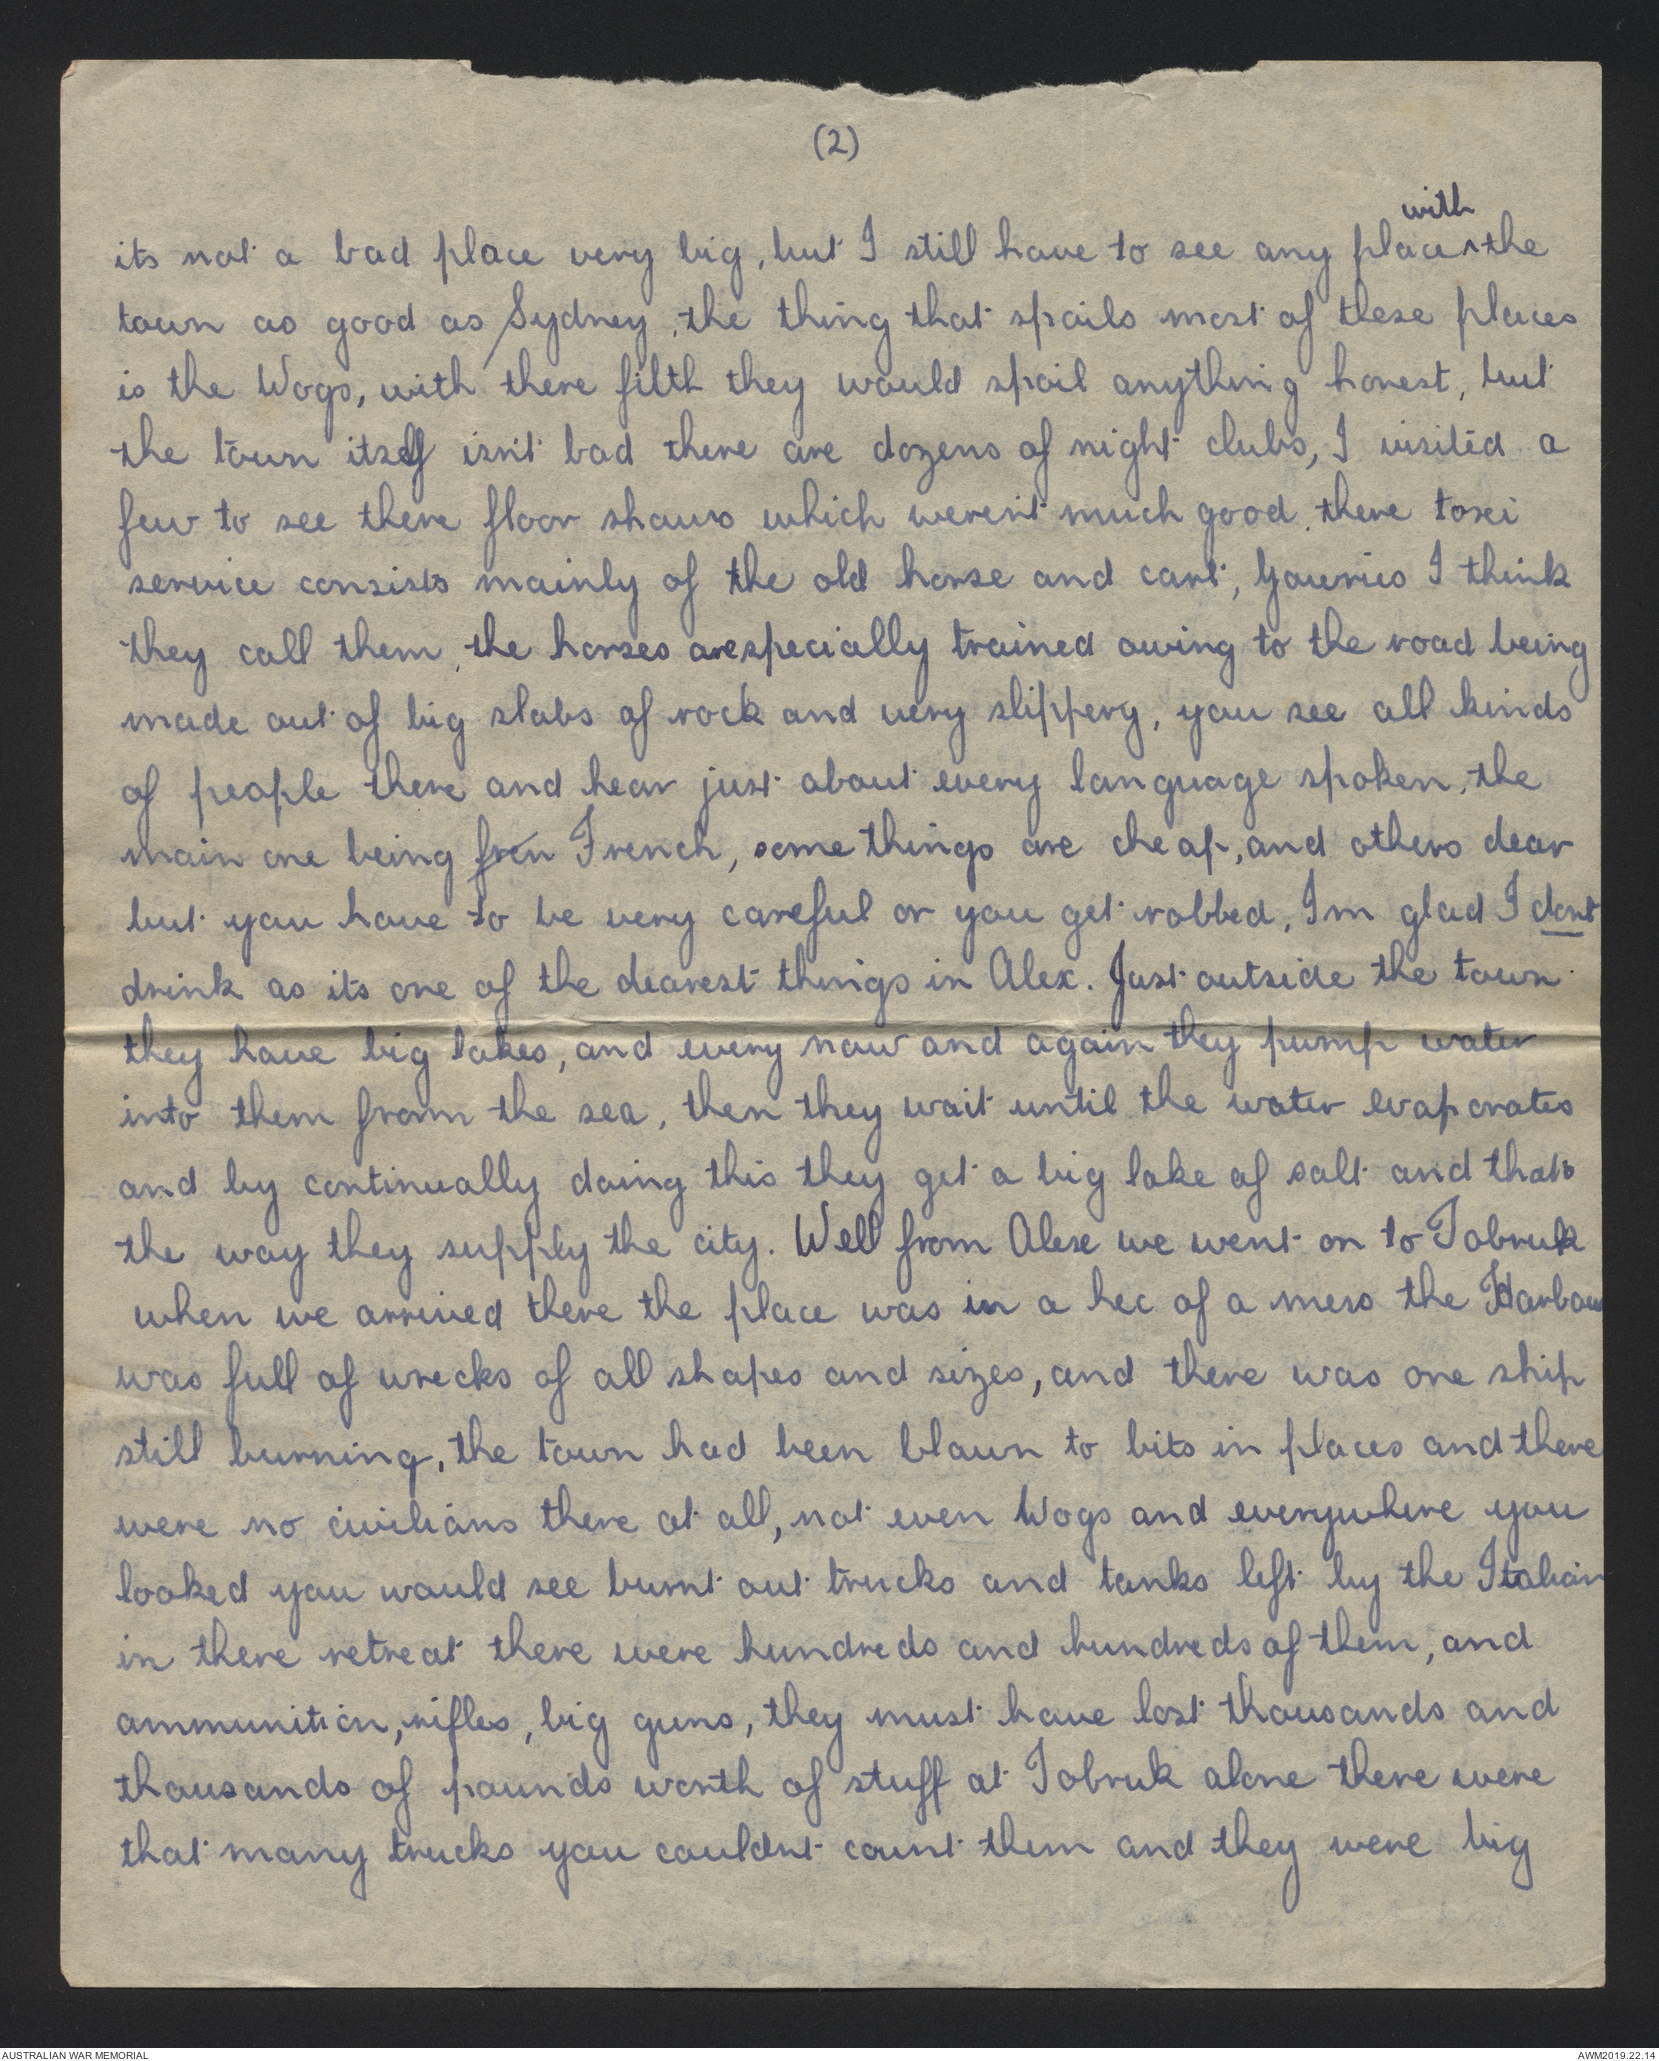 (2)
with
its not a bad place very big, but I still have to see any place ^ the
town as good as Sydney, the thing that spoils most of these places
is the Wogs, with there filth they would spoil anything honest, but
the town itself isn't bad there are dozens of night clubs, I visited a
few to see there floor shows which weren't much good, there taxi
service consists mainly of the old horse and cart, Gouries I think
they call them, the horses are specially trained owing to the road being
made out of big slabs of rock and very slippery, you see all kinds
of people there and hear just about every language spoken, the
main one being fren French, some things are cheap, and others dear
but you have to be very careful or you get robbed, Im glad I dont
drink as its one of the dearest things in Alex. Just outside the town
they have big lakes, and every now and again they pump water
into them from the sea, then they wait until the water evaporates
and by continually doing this they get a big lake of salt and thats
the way they supply the city. Well from Alex we went on to Tobruk
when we arrived there the place was in a hec of a mess the Harbour
was full of wrecks of all shapes and sizes, and there was one ship
still burning, the town had been blown to bits in places and there
were no civilians there at all, not even Wogs and everywhere you
looked you would see burnt out trucks and tanks left by the Italian
in there retreat there were hundreds and hundreds of them, and
ammunition, rifles, big guns, they must have lost thousands and
thousands of pounds worth of stuff at Tobruk alone there were
that many trucks you couldn't count them and they were big
AUSTRALIAN WAR MEMORIAL
AWM2019.22.14